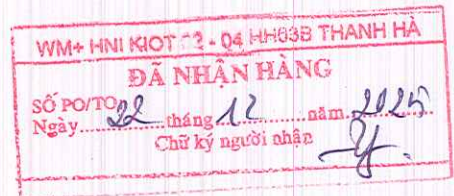 WM+ HNI KIOT 02 - 04 HH03B THANH HÀ
ĐÃ NHẬN HÀNG
SỐ PO/TO
Ngày 22 tháng 12 năm 2025
Chữ ký người nhận